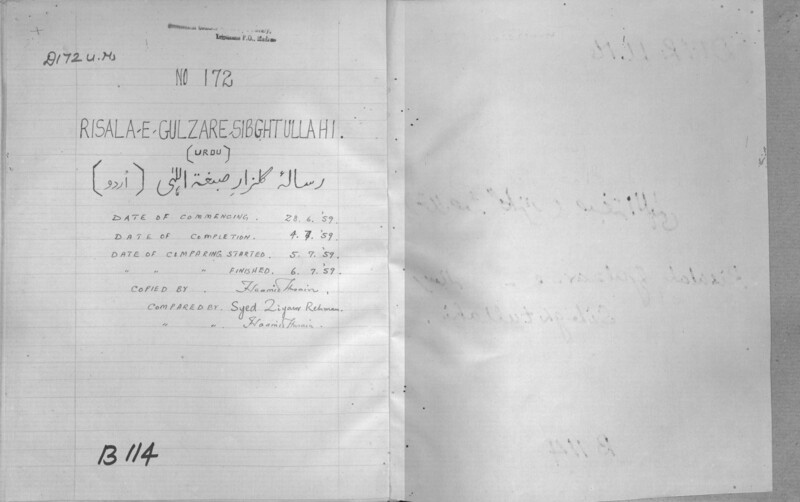 D172 U.M
NO 172
RISALA-E-GULZARE-SIBGHTULLAHI.
(URDU)
رسالۂ گلزارِ صبغۃ اللہٰی (اُردو)
DATE OF COMMENCING. 28.6.'59.
DATE OF COMPLETION. 4.7.'59.
DATE OF COMPARING STARTED. 5.7.'59.
" " " FINISHED. 6.7.'59.
COPIED BY.
COMPARED BY. Syed Ziyaur Rehman.
" "
B 114
B 114